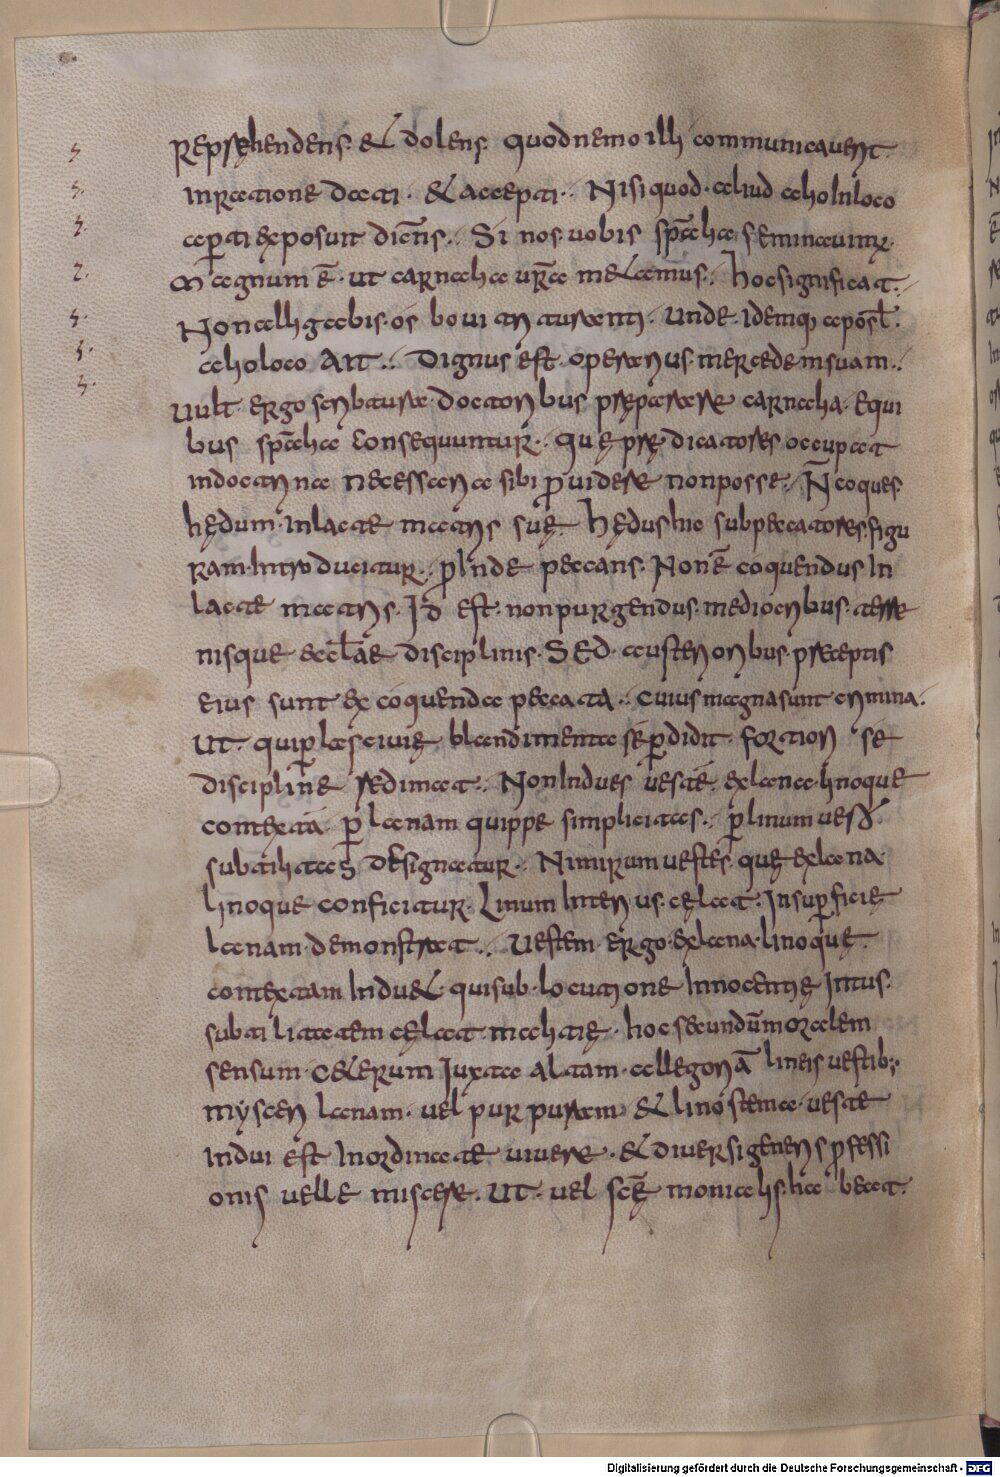 Repręhendens. & dolens. quod nemo illi communicaverit.
In ratione dati. & accepti. Nisi quod. aliud aho In loco
aperti exposuit dicēs. Si nos vobis spitalia seminavimus.
Magnum ē. ut carnalia vrā metamus. hoc significat.
Non alligabis. os bovi trituranti. Unde. idemq; apostl.
alio loco Ait. Dignus est. operarius. mercedem suam.
Vult. ergo scribtura. doctoribus pręparare carnalia. Equi
bus spitalia consequuntur. quę prędicatores occupat
In doctrina necessaria sibi p̱videre non posse. Ñ coques.
hędum. in lacte matris suę. Hędus hic sub peccatores. figu
ram. Introducitur. p̱Inde peccans. Non ē coquendus In
lacte matris. Id est. nonpurgendus. mediocribus. atere
nisque ecclae disciplinis. Sed. austerioribus. praeceptis
eius sunt excoquenda peccata. cuius magna sunt crimina.
Ut. qui p̱ lascivię. blandimenta se p̱didit. fortiori se
disciplinę redimat. Non Indues vestē. ex lana. linoque
contextā. p̱ lanam quippe simplicitas. p̱ linum vero
subtilitas designatur. Nimirum vestes. que ex lana
linoque conficitur. Linum Interius. cęlat. In sup̱ficię
lanam. demonstrat. Vestem. ergo. exlana. linoque.
contextam Induet. qui sub. locutione Innocentię Intus.
subtilitatem cęlat malitię. hoc secundum moralem
sensum. Ceterum Juxta altam. allegoriā lineis vestib;
mysceri lanam. vel purpuram. & linostema. veste
Indui est Inordinate vivere. & diversi generis p̱fessi
onis velle miscere. Ut. vel scę monialis. habeat.
Digitalisierung gefördert durch die Deutsche Forschungsgemeinschaft - DFG